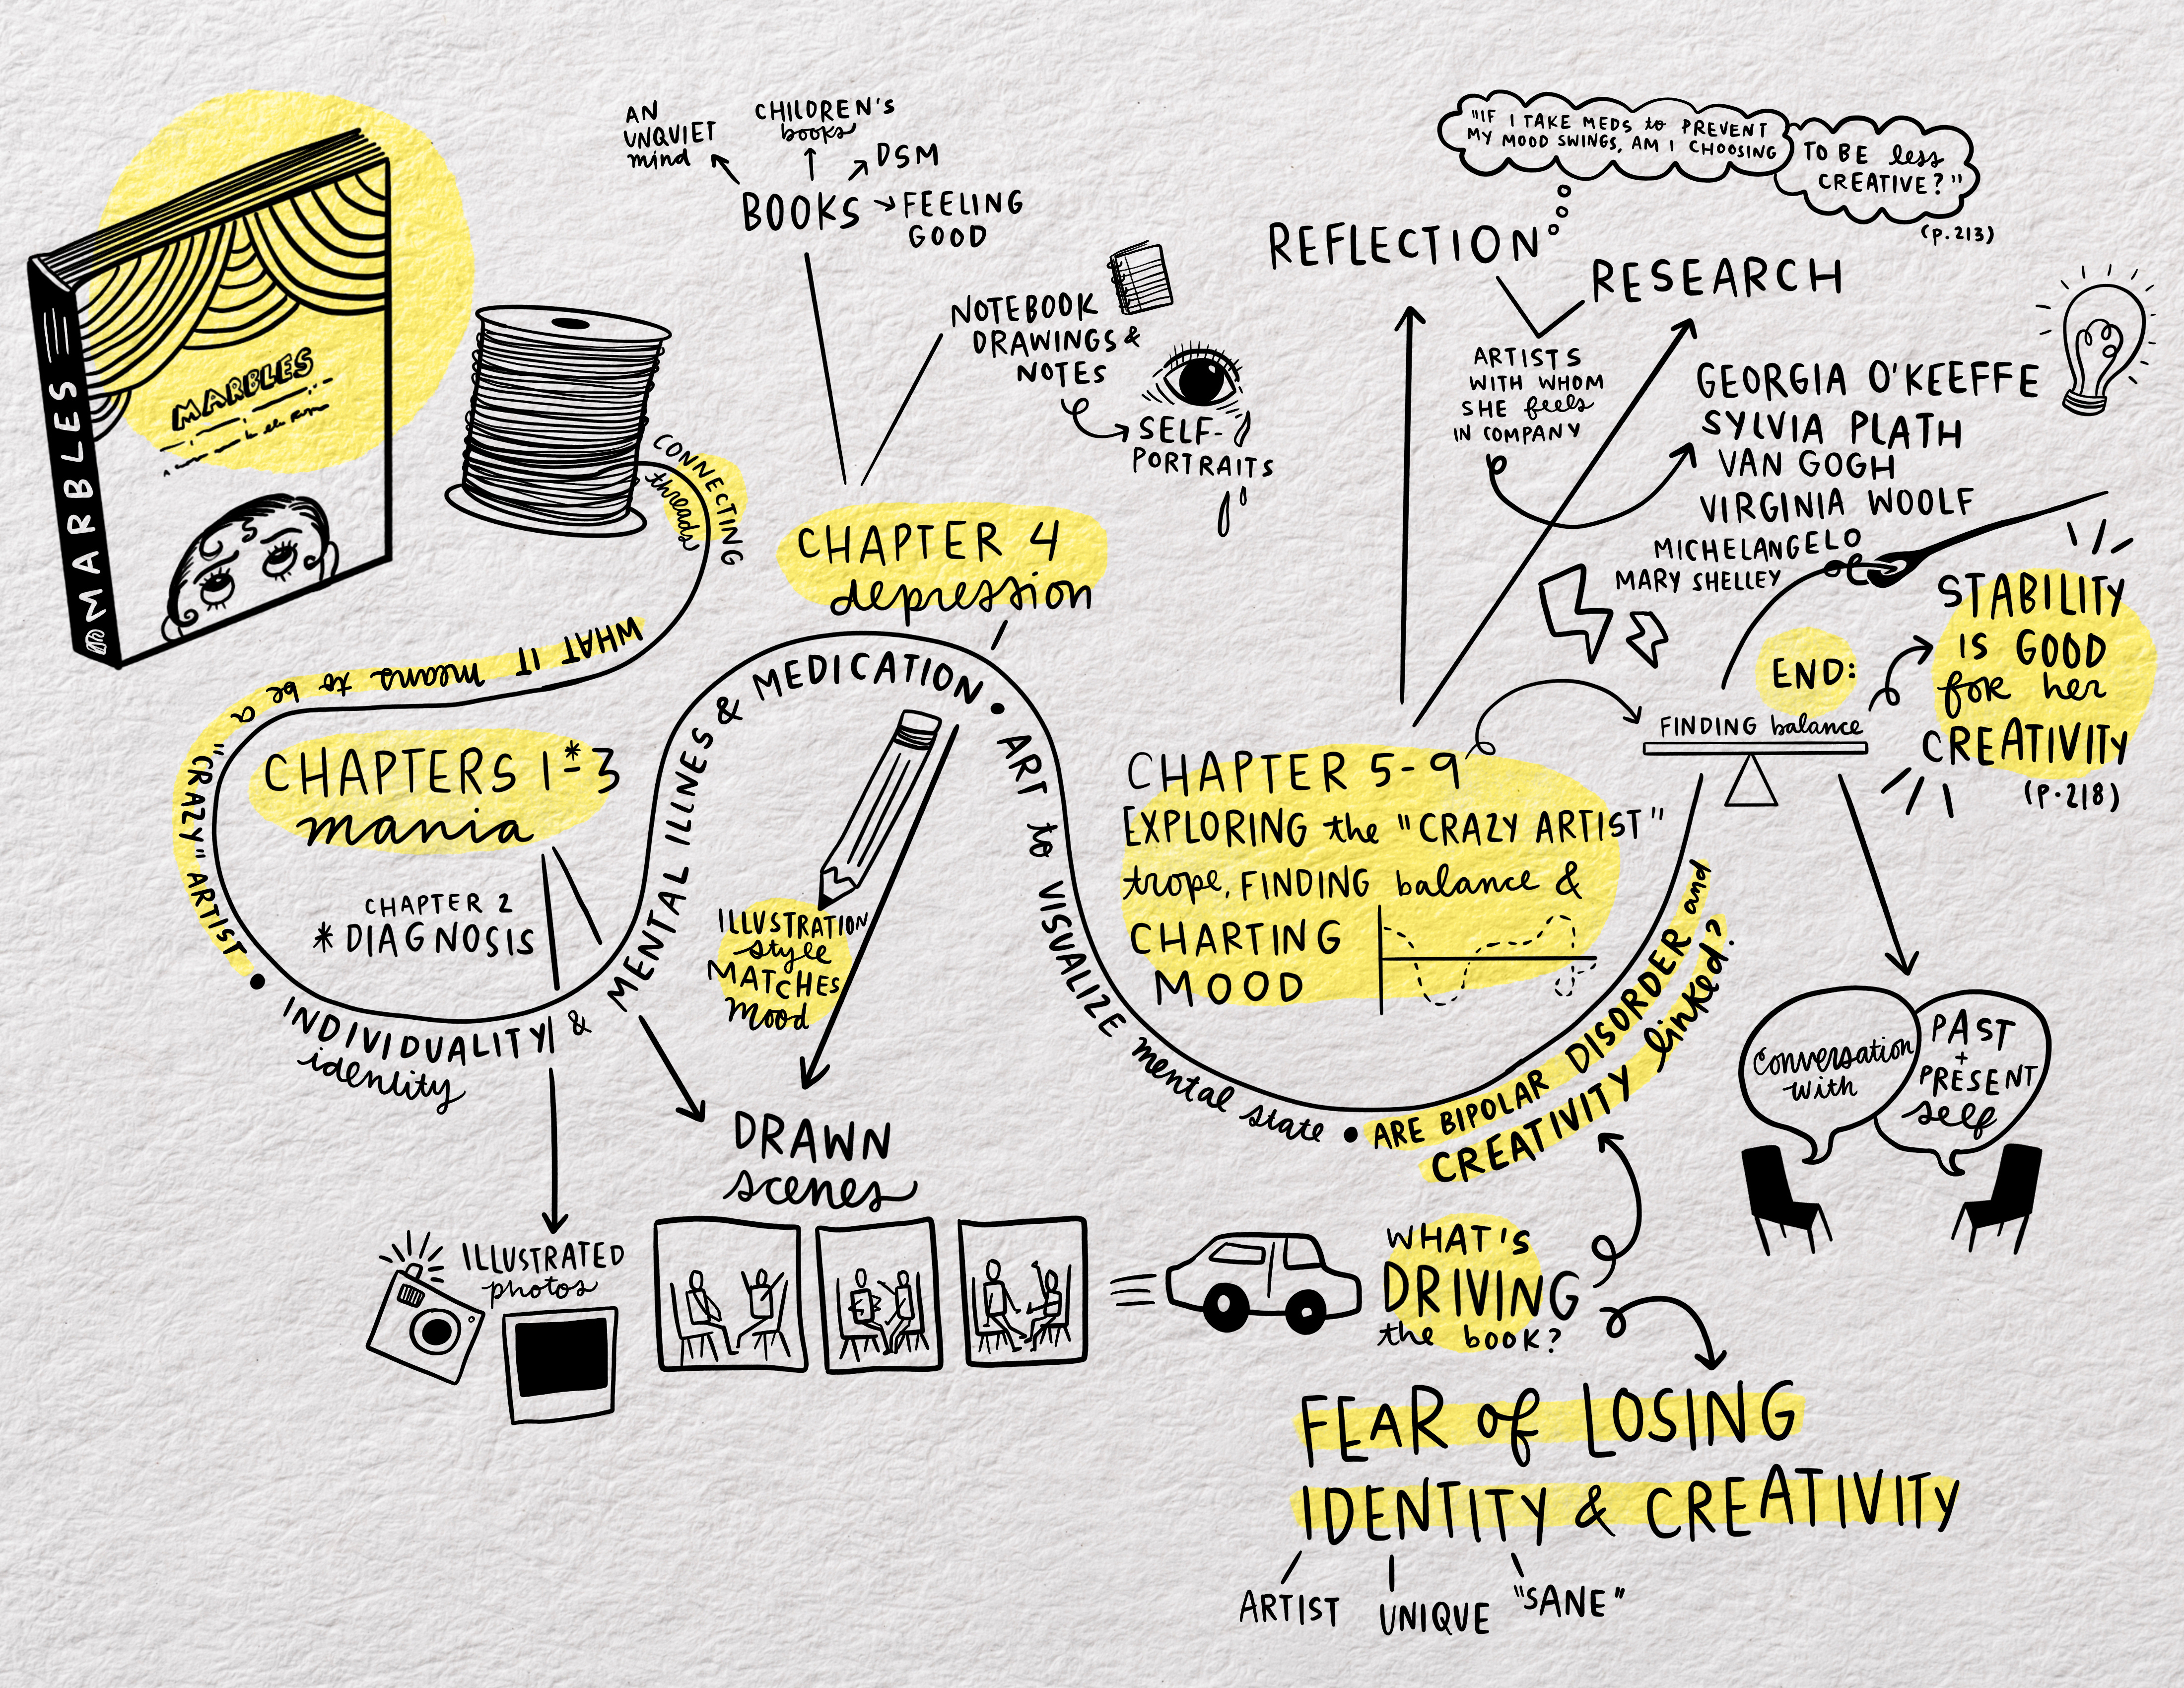 MARBLES
MARBLES
AN
UNQUIET
mind
CHILDREN'S
books
DSM
BOOKS
FEELING
GOOD
NOTEBOOK
DRAWINGS &
NOTES
SELF-
PORTRAITS
"IF I TAKE MEDS to PREVENT
MY MOOD SWINGS, AM I CHOOSING
TO BE less
CREATIVE?"
(P.213)
REFLECTION
RESEARCH
ARTISTS
WITH WHOM
SHE feels
IN COMPANY
GEORGIA O'KEEFFE
SYLVIA PLATH
VAN GOGH
VIRGINIA WOOLF
MICHELANGELO
MARY SHELLEY
CONNECTING
threads
WHAT IT means to be a
"CRAZY" ARTIST •
INDIVIDUALITY &
identity
MENTAL ILLNESS & MEDICATION •
ART to VISUALIZE mental state •
ARE BIPOLAR DISORDER and
CREATIVITY linked?
CHAPTERS 1*-3
mania
CHAPTER 2
* DIAGNOSIS
CHAPTER 4
depression
ILLUSTRATION
style
MATCHES
mood
CHAPTER 5-9
EXPLORING the "CRAZY ARTIST"
trope, FINDING balance &
CHARTING
MOOD
END:
FINDING balance
STABILITY
IS GOOD
for her
CREATIVITY
(P.218)
Conversation
with
PAST
+
PRESENT
self
DRAWN
scenes
ILLUSTRATED
photos
WHAT'S
DRIVING
the book?
FEAR of LOSING
IDENTITY & CREATIVITY
ARTIST
UNIQUE
"SANE"